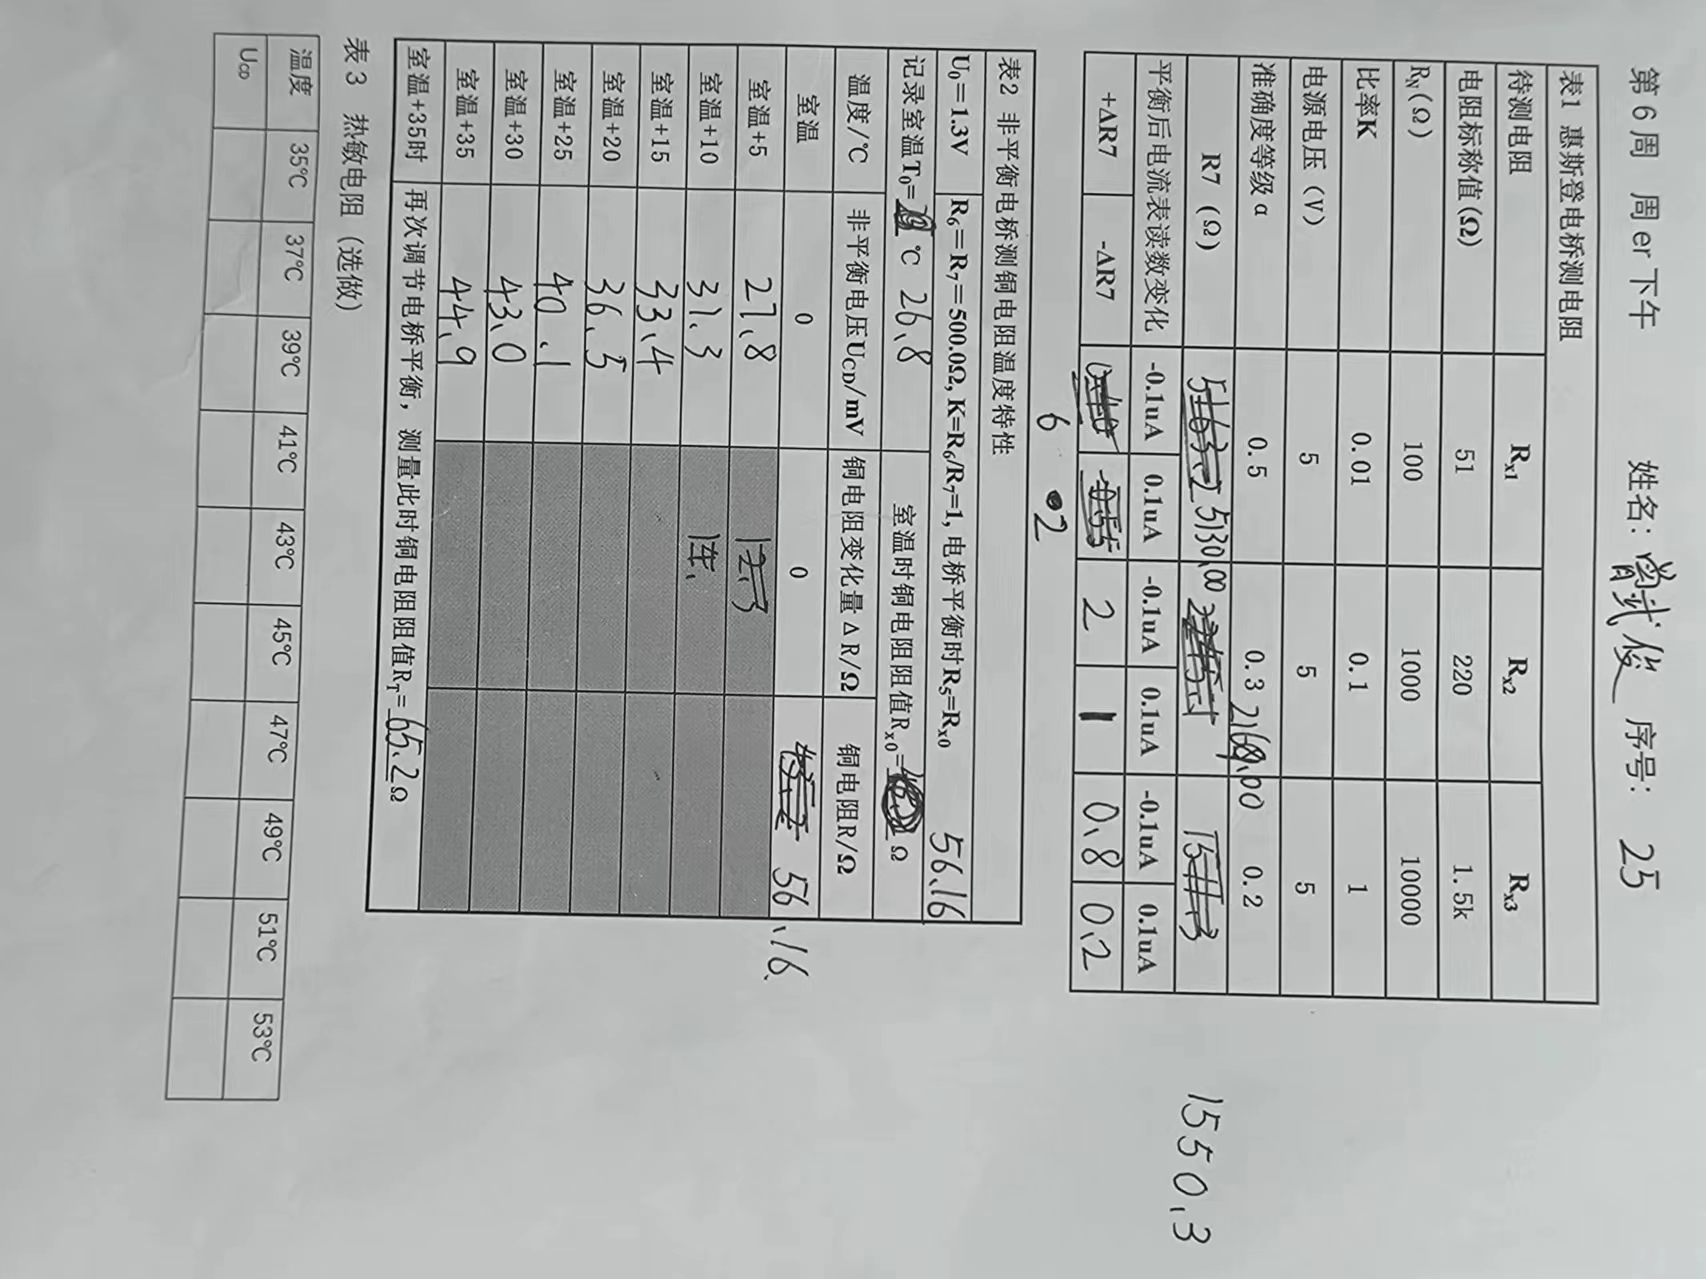 第6周 周er下午 姓名：曾武俊 序号： 25
表1 惠斯登电桥测电阻
待测电阻 Rx1 Rx2 Rx3
电阻标称值(Ω) 51 220 1.5k
RN(Ω) 100 1000 10000
比率K 0.01 0.1 1
电源电压（V） 5 5 5
准确度等级α 0.5 0.3 0.2
R7（Ω） 5130.00 2160.00 1550.3
平衡后电流表读数变化 -0.1uA 0.1uA -0.1uA 0.1uA -0.1uA 0.1uA
+ΔR7 -ΔR7 2 1 0.8 0.2
6 2
表2 非平衡电桥测铜电阻温度特性
U0=1.3V R6=R7=500.0Ω, K=R6/R7=1, 电桥平衡时R5=Rx0 56.16
记录室温T0= ℃ 26.8 室温时铜电阻阻值Rx0= Ω
温度/℃ 非平衡电压UCD/mV 铜电阻变化量ΔR/Ω 铜电阻R/Ω
室温 0 0 56.16
室温+5 27.8
室温+10 31.3
室温+15 33.4
室温+20 36.5
室温+25 40.1
室温+30 43.0
室温+35 44.9
室温+35时 再次调节电桥平衡，测量此时铜电阻阻值RT=65.2Ω
表3 热敏电阻（选做）
温度 35℃ 37℃ 39℃ 41℃ 43℃ 45℃ 47℃ 49℃ 51℃ 53℃
UCD